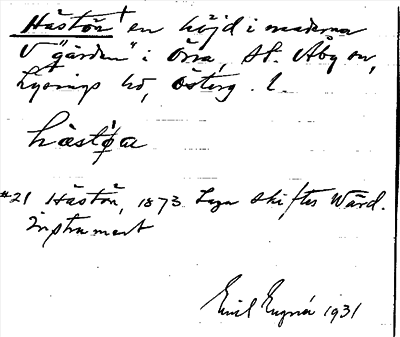 Hästön en höjd i maderna
V "gården" i Örra, St. Åby sn,
Lysings hd, Österg. l.
hästøa
#21 Hästön, 1873 Laga skiftes Värd.
Instrument
Emil 1931